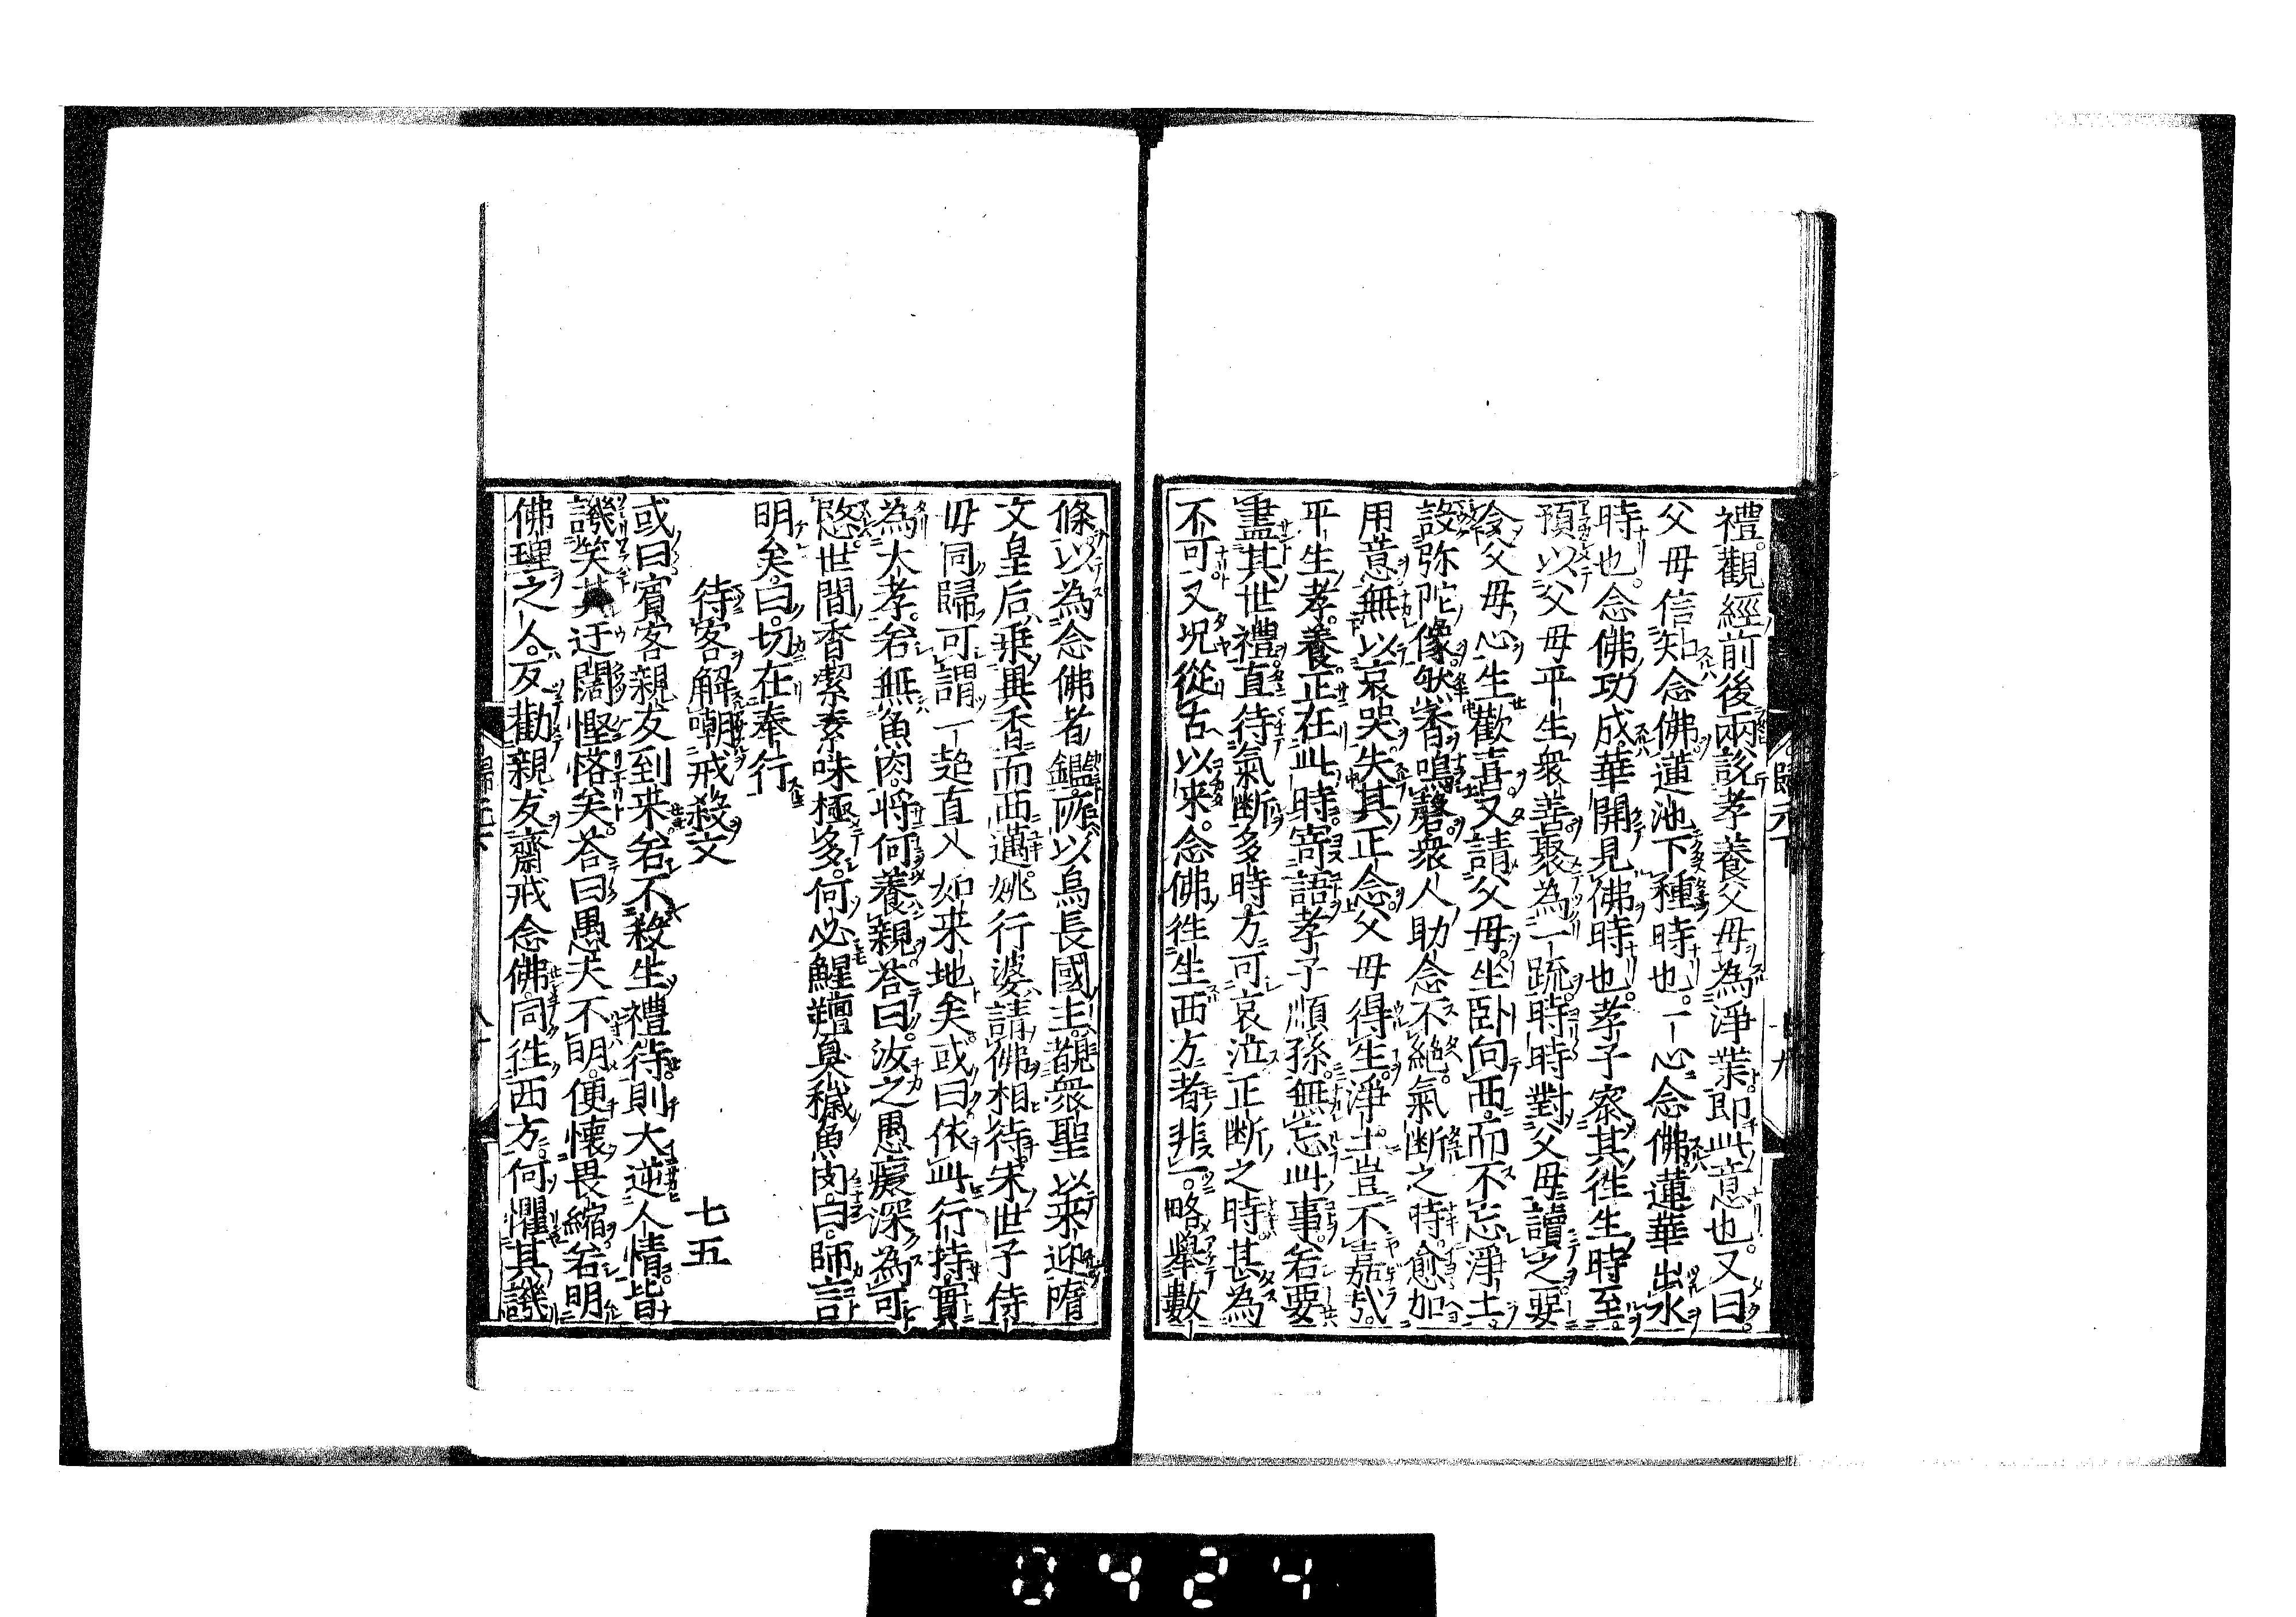 禮。觀經前後兩說孝養父母為淨業即此意也。又曰。
父母信知念佛。蓮池下種時也。一心念佛。蓮華出水
時也。念佛功成。華開見佛時也。孝子察其徃生時至。
預以父母平生衆善聚為一疏。時時對父母讀之要
令父母心生歡喜。又請父母。坐卧向西。而不忘淨土。
設弥陀像。然香鳴磬。衆人助念不絶。氣断之時。愈加
用意無以哀哭失其正念。父母得生淨土。豈不嘉哉。
平生孝養正在此時。寄語孝子順孫。無忘此事。若要
盡其世禮直待氣断多時。方可哀泣。正断之時。甚為
不可。又况從古以來。念佛徃生西方者非一。略舉數
條以為念佛者鑑。所以烏長國王。覩衆聖以來迎。隋
文皇后。乗異香而西邁。姚行婆。請佛相待。宋世子侍
母同歸。可謂一超直入如来地矣。或曰。依此行持。實
為大孝。若無魚肉。将何養親。荅曰。汝之愚癡深為可
愍。世間香潔素味極多。何必鯹羶臭穢魚肉。曰。師言
明矣。曰。切在奉行
待客解嘲戒殺文　七五
或曰賓客親友到来。若不殺生禮待。則大逆人情。皆
譏笑其迂闊慳悋矣。荅曰愚夫不明。便懷畏縮。若明
佛理之人。反勸親友齋戒念佛。同徃西方。何懼其譏
歸元下
七九
0424